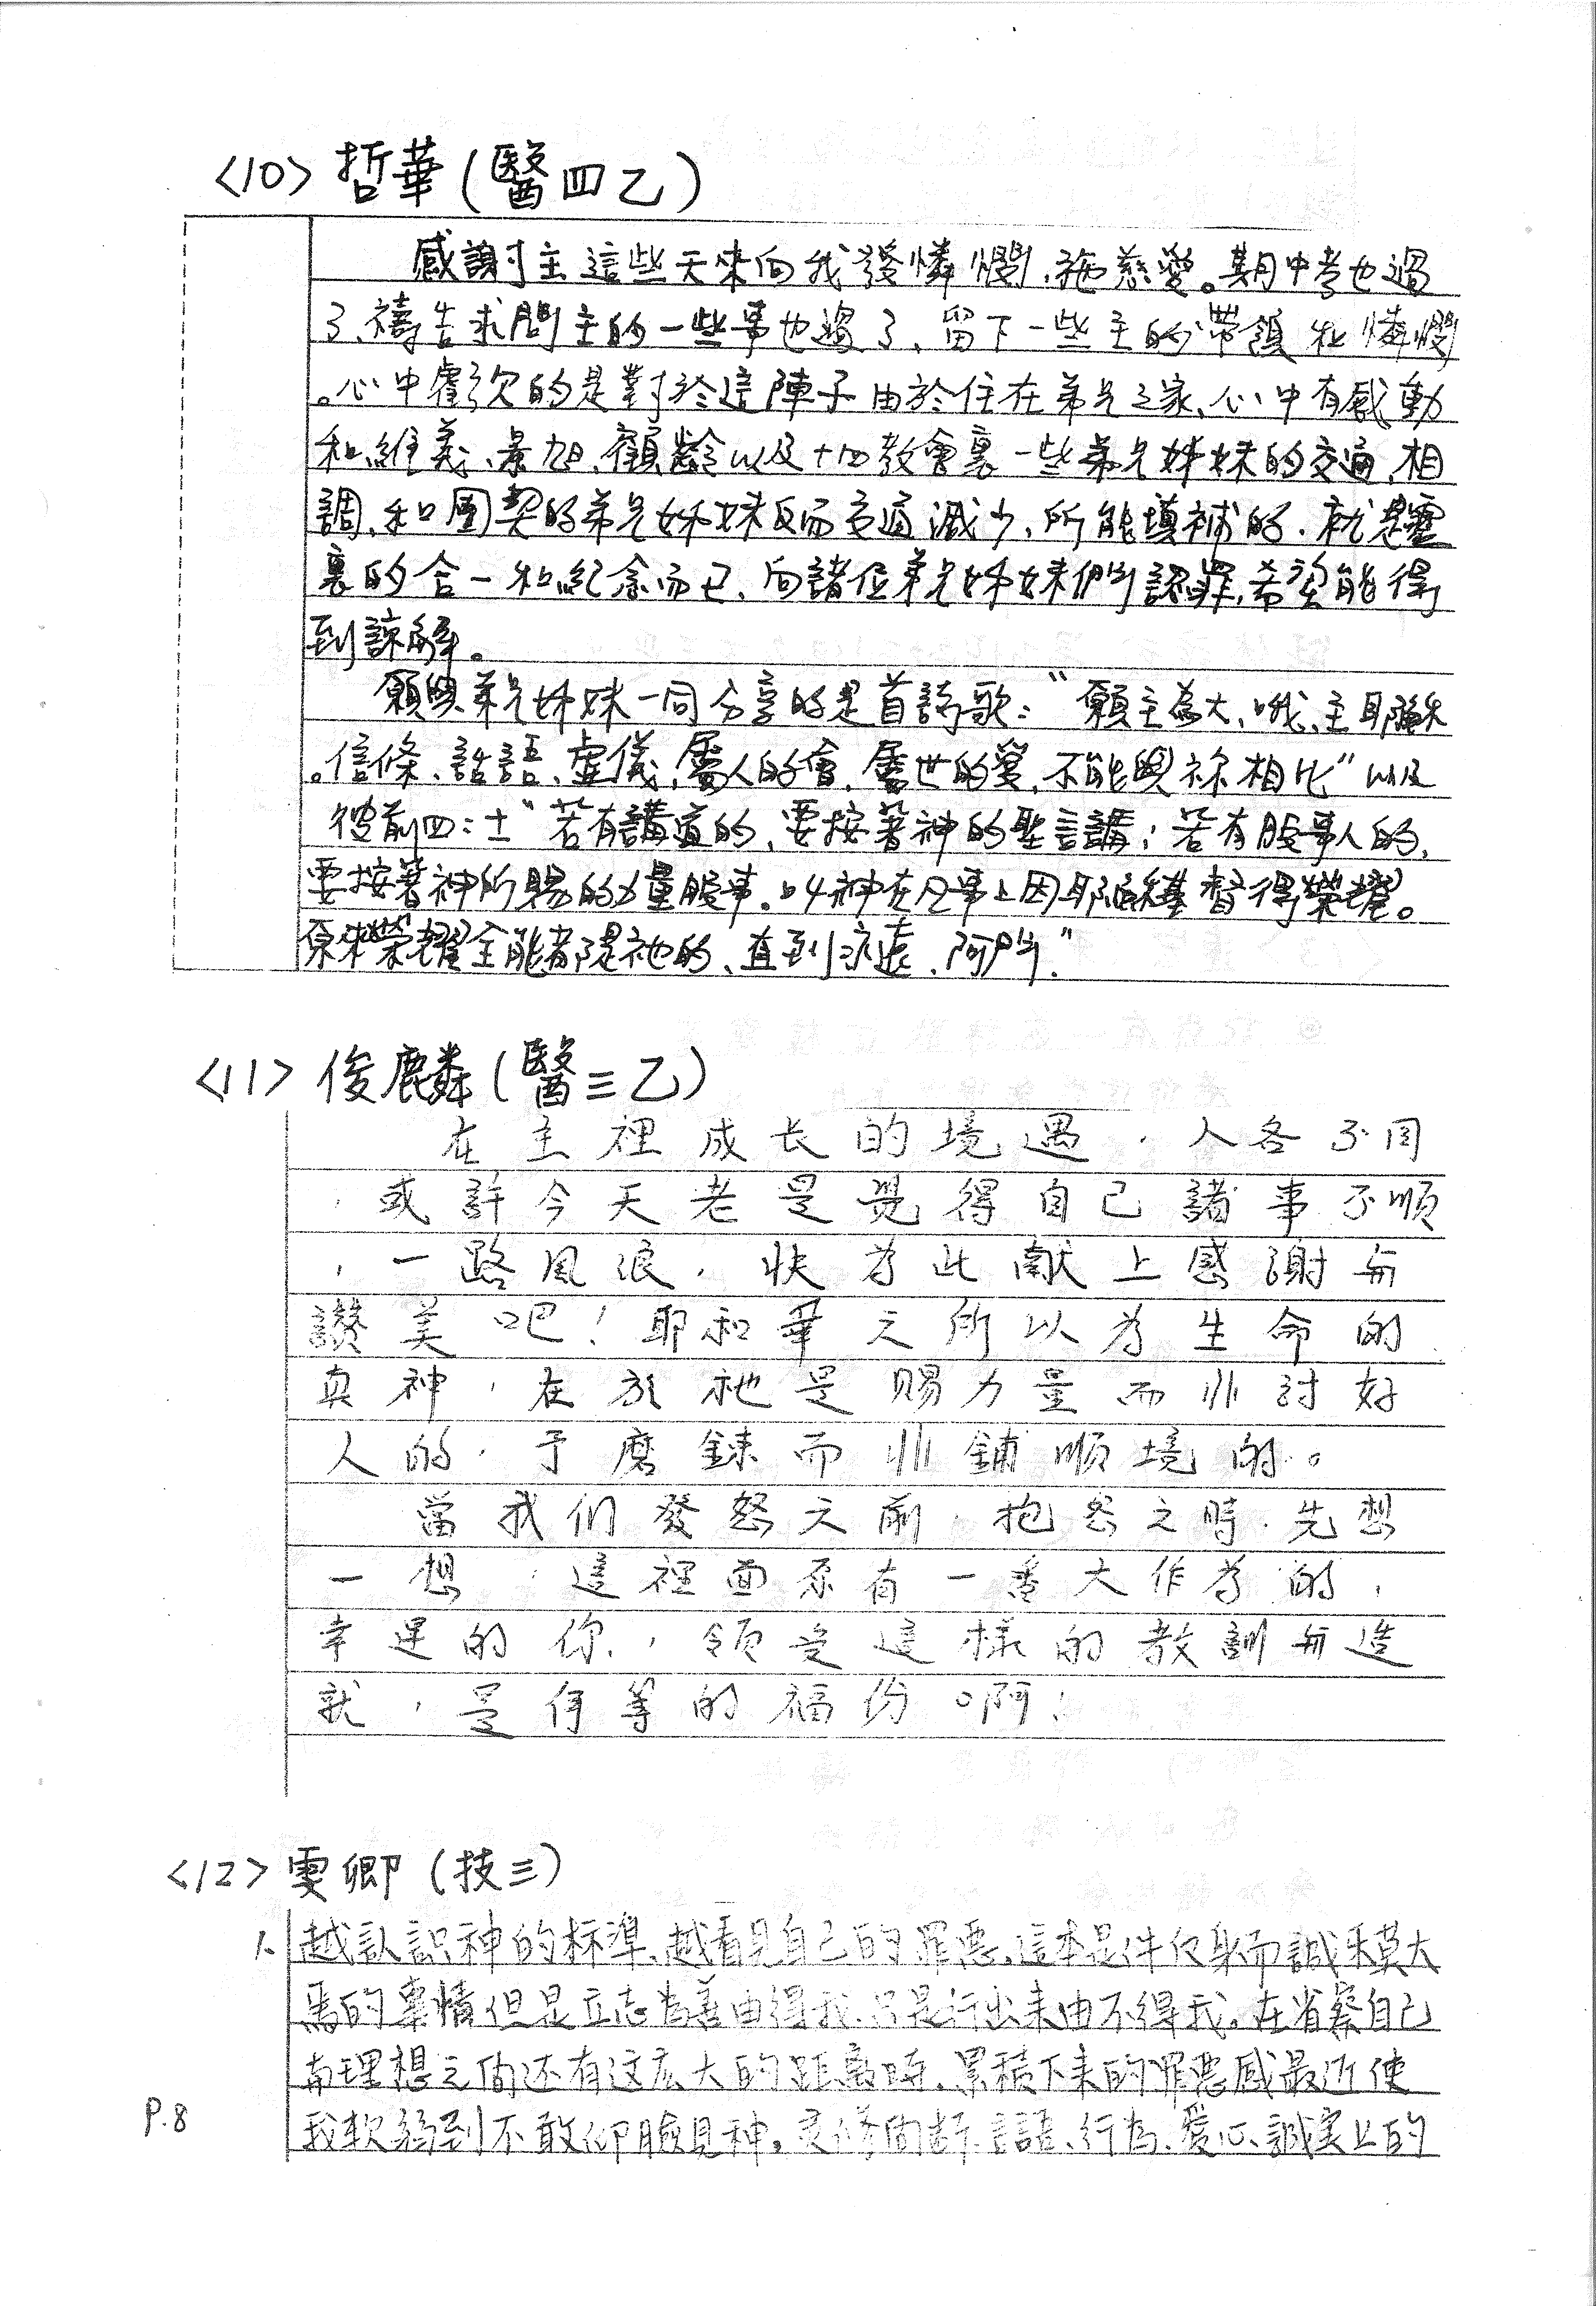 <10> 哲華(醫四乙)
感謝主這些天來向我發憐憫、施慈愛。期中考也過
了、禱告求問主的一些事也過了、留下一些主的帶領和憐憫
。心中虧欠的是對於這陣子由於住在弟兄之家、心中有感動
和維義、景旭、顧齡以及十四教會裏一些弟兄姊妹的交通、相
調、和團契的弟兄姊妹反而交通減少、所能填補的、就是靈
裏的合一和紀念而已、向諸位弟兄姊妹們認罪、希望能得
到諒解。
願與弟兄姊妹一同分享的是首詩歌:“願主為大、哦、主耶穌
。信條、話語、虛儀、屬人的會、屬世的愛、不能與祢相比”以及
彼前四:十一“若有講道的、要按著神的聖言講;若有服事人的、
要按著神所賜的力量服事。叫神在凡事上因耶穌基督得榮耀。
原來榮耀全能者是祂的、直到永遠、阿們.”
<11> 俊麟(醫三乙)
在主裡成长的境遇,人各不同
,或許今天老是覺得自己諸事不順
,一路風浪,快为此献上感謝与
讚美吧!耶和華之所以为生命的
真神,在於祂是賜力量而非討好
人的,予磨鍊而非鋪順境的。
當我们發怒之前,抱怨之時,先想
一想,這裡面原有一番大作为的,
幸運的你,領受這樣的教訓与造
就,是何等的福份啊!
<12> 雯卿(技三)
1. 越認識神的标準、越看見自己的罪惡、這本是件反身而誠樂莫大
焉的事情但是立志為善由得我、只是行出来由不得我。在省察自己
与理想之间还有这么大的距离時、累積下来的罪惡感最近使
我軟弱到不敢仰臉見神。灵修间断、言語、行為、愛心、誠实上的
P.8